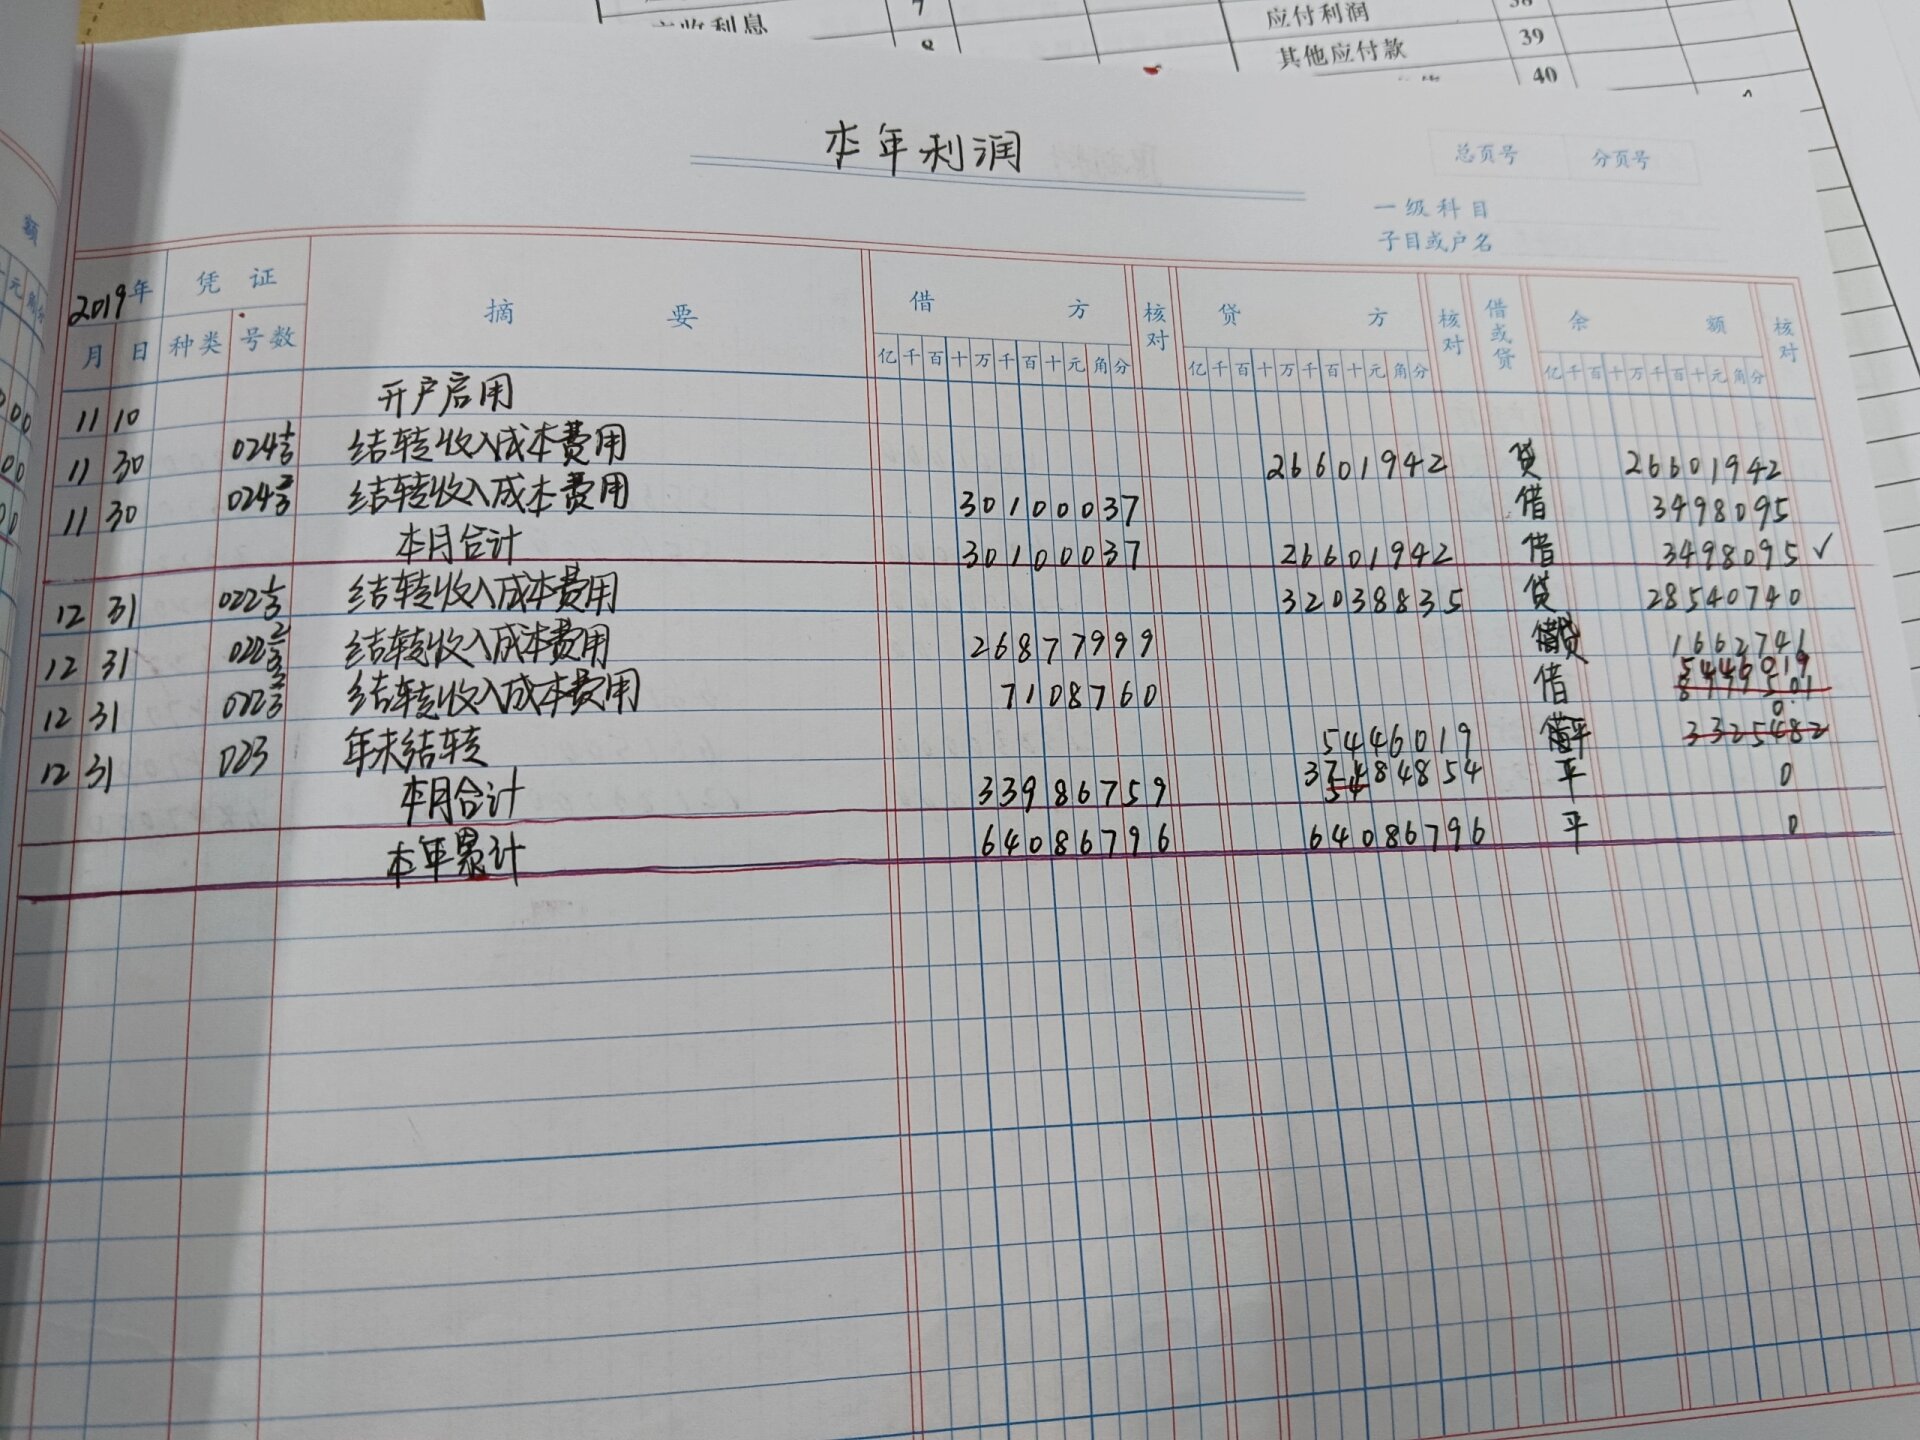 应收利息 7
8
应付利润 38
其他应付款 39
40
本年利润
总页号 分页号
一级科目
子目或户名
额
元角分
2019年 凭证 摘要 借方 核对 贷方 核对 借或贷 余额 核对
月 日 种类 号数 亿千百十万千百十元角分 亿千百十万千百十元角分 亿千百十万千百十元角分
11 10 开户启用
11 30 024 1/3 结转收入成本费用 26601942 贷 26601942
11 30 024 结转收入成本费用 30100037 借 3498095
本月合计 30100037 26601942 借 3498095 ✓
12 31 022 1/3 结转收入成本费用 32038835 贷 28540740
12 31 022 2/3 结转收入成本费用 26877999 贷 1662741
12 31 022 结转收入成本费用 7108760 借 5446019
12 31 023 年末结转 5446019 平 0
3325482
本月合计 33986759 37484854 平 0
本年累计 64086796 64086796 平 0